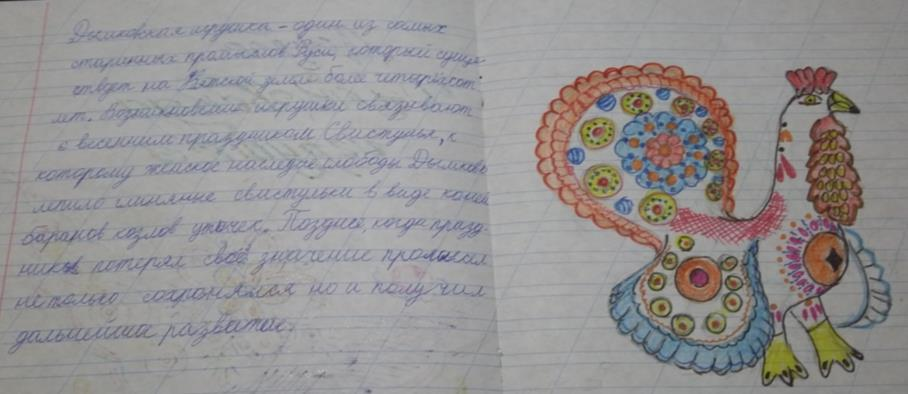 Дымковская игрушка - один из самых
старинных промыслов Руси, который суще-
ствует на Вятской земле более четырёхсот
лет. Возникновение игрушки связывают
с весенним праздником Свистунья, к
которому женское население слободы Дымково
лепило глиняные свистульки в виде коней
баранов козлов уточек. Позднее, когда празд-
ник потерял своё значение промысел
не только сохронялся но и получил
дальнейшее развитие.